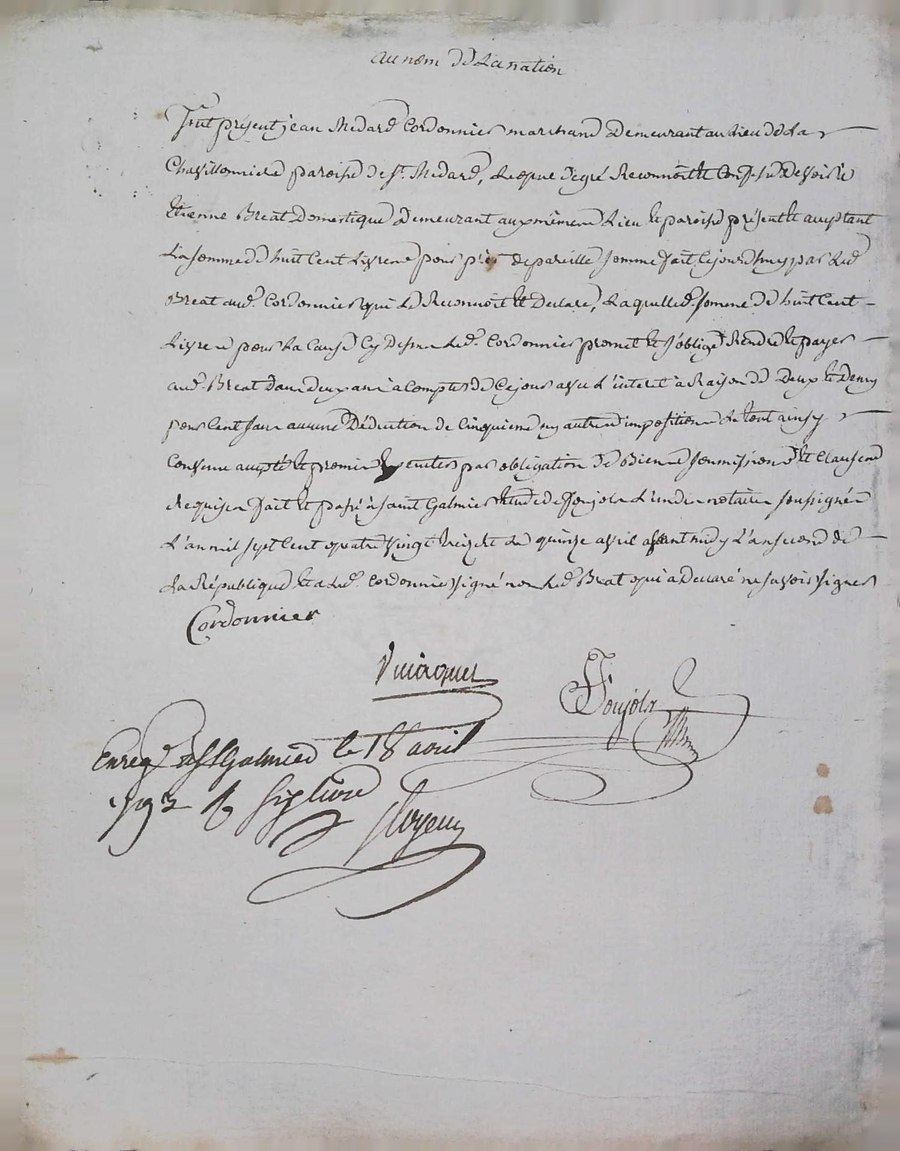 au nom de La nation
Fut présent jean Medard Cordonnier marchand Demeurant au Lieu de La
paroisse de St. Medard, Lequel De gré Reconnoit et Confesse Devoir à
Etienne Breat Domestique Demeurant aux mêmes Lieu et paroisse présent et acceptant
La somme de huit Cent Livres pour prêt de pareille somme fait Cejourdhuy par Led.
Breat aud. Cordonnier qui Le Reconnoit et Declare, Laquelle d. somme de huit Cent
Livres pour La Cause Cy Dessus Led. Cordonnier promet et s'oblige Rendre et payer
aud. Breat Dans Deux ans a Compter de Cejour avec L'interet à Raison de Deux et Demy
pour Cent sans aucune Déduction de Cinquieme ny autres impositions Le tout ainsy
Convenu accepté et promis executer par obligation de Biens soumissions et Clauses
Requises fait et passé à Saint Galmier Etude de Soujols L'un des notaires soussignés
L'an mil sept Cent quatre vingt treize Le quinze avril avant midy L'an second de
La République et a Led. Cordonnier signé non Led. Breat qui a Declaré ne savoir signer
Cordonnier
Soujols
Enreg. à St Galmier le 18 avril
1793